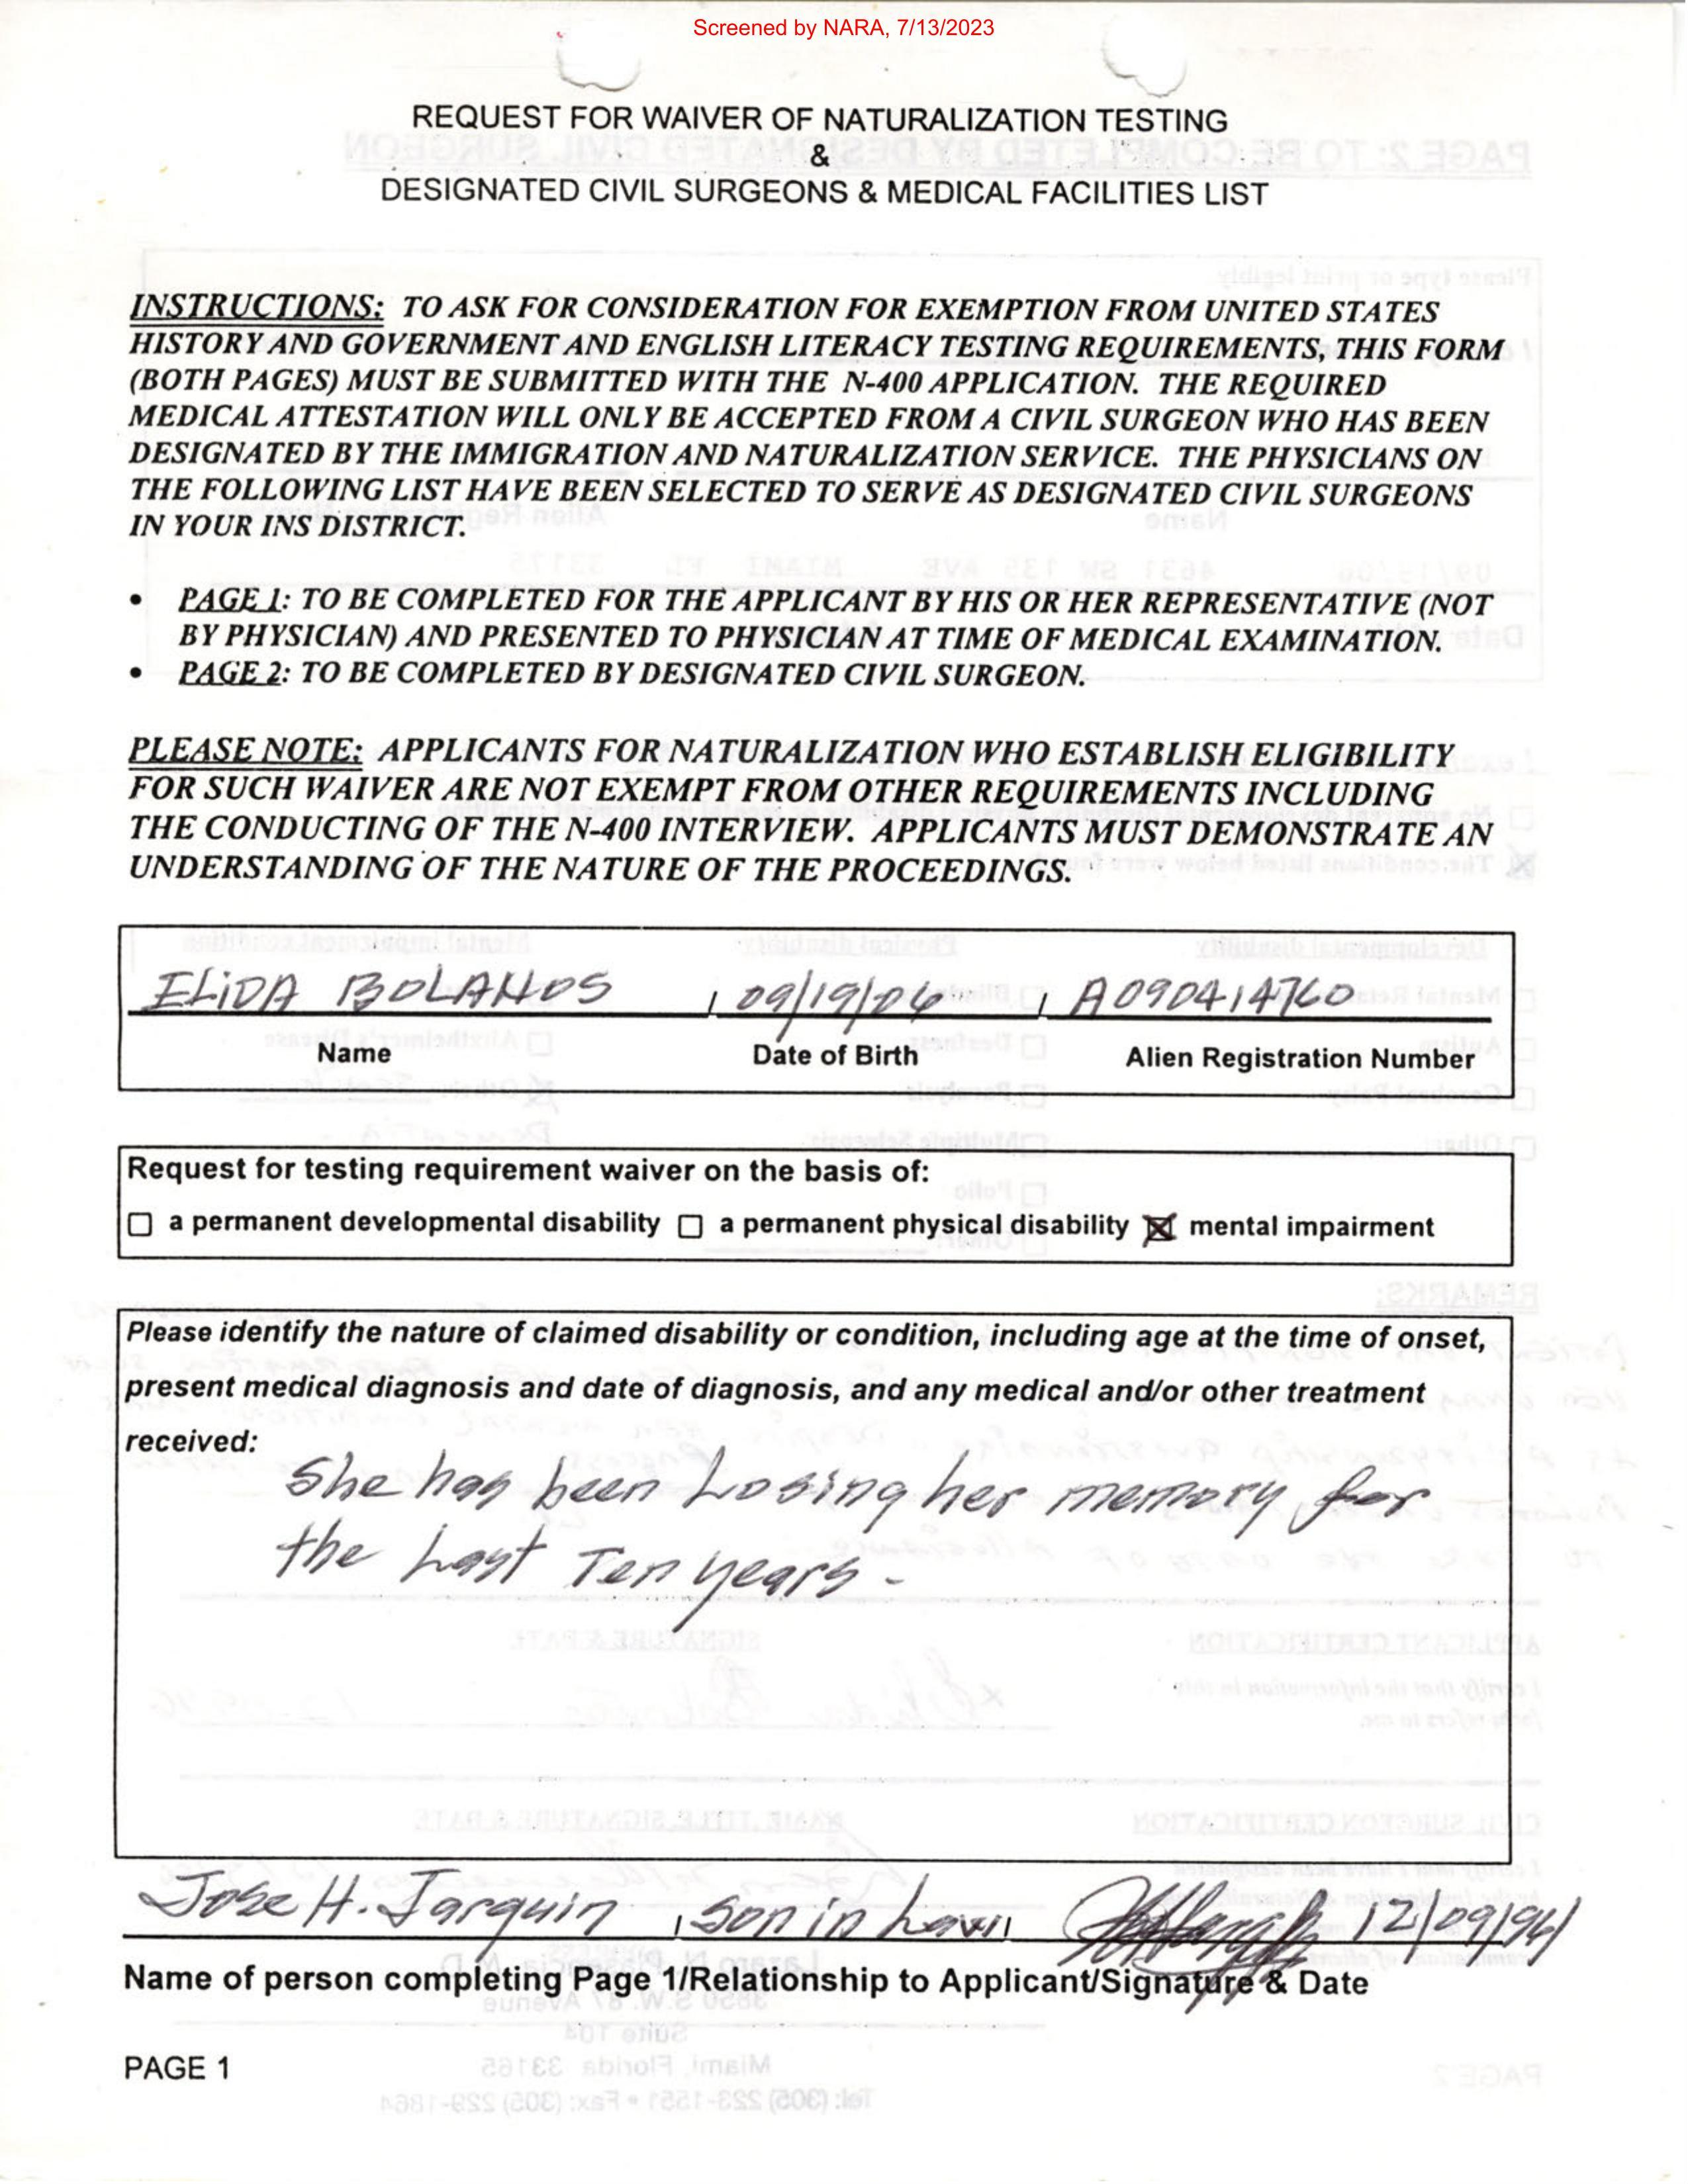 Screened by NARA, 7/13/2023
REQUEST FOR WAIVER OF NATURALIZATION TESTING
&
DESIGNATED CIVIL SURGEONS & MEDICAL FACILITIES LIST
INSTRUCTIONS: TO ASK FOR CONSIDERATION FOR EXEMPTION FROM UNITED STATES
HISTORY AND GOVERNMENT AND ENGLISH LITERACY TESTING REQUIREMENTS, THIS FORM
(BOTH PAGES) MUST BE SUBMITTED WITH THE N-400 APPLICATION. THE REQUIRED
MEDICAL ATTESTATION WILL ONLY BE ACCEPTED FROM A CIVIL SURGEON WHO HAS BEEN
DESIGNATED BY THE IMMIGRATION AND NATURALIZATION SERVICE. THE PHYSICIANS ON
THE FOLLOWING LIST HAVE BEEN SELECTED TO SERVE AS DESIGNATED CIVIL SURGEONS
IN YOUR INS DISTRICT.
• PAGE 1: TO BE COMPLETED FOR THE APPLICANT BY HIS OR HER REPRESENTATIVE (NOT
BY PHYSICIAN) AND PRESENTED TO PHYSICIAN AT TIME OF MEDICAL EXAMINATION.
• PAGE 2: TO BE COMPLETED BY DESIGNATED CIVIL SURGEON.
PLEASE NOTE: APPLICANTS FOR NATURALIZATION WHO ESTABLISH ELIGIBILITY
FOR SUCH WAIVER ARE NOT EXEMPT FROM OTHER REQUIREMENTS INCLUDING
THE CONDUCTING OF THE N-400 INTERVIEW. APPLICANTS MUST DEMONSTRATE AN
UNDERSTANDING OF THE NATURE OF THE PROCEEDINGS.
ELIDA BOLANOS 09/19/06 A090414760
Name Date of Birth Alien Registration Number
Request for testing requirement waiver on the basis of:
☐ a permanent developmental disability ☐ a permanent physical disability ☒ mental impairment
Please identify the nature of claimed disability or condition, including age at the time of onset,
present medical diagnosis and date of diagnosis, and any medical and/or other treatment
received:
She has been Losing her memory for
the Last Ten years -
Jose H. Jarquin son in Law 12/09/96
Name of person completing Page 1/Relationship to Applicant/Signature & Date
PAGE 1